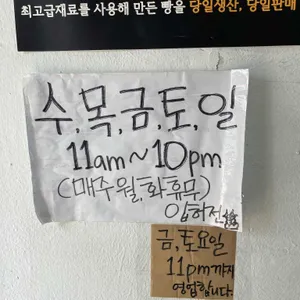 최고급재료를 사용해 만든 빵을 당일생산, 당일판매
수,목,금,토,일
11am~10pm
(매주월,화휴무)
금,토요일
11pm까지
영업합니다.